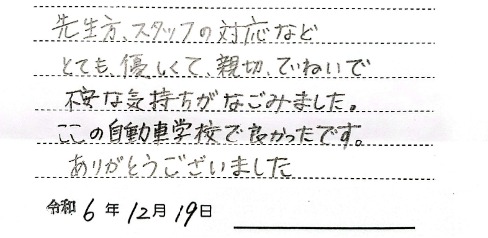 先生方、スタッフの対応など
とても、優しくて、親切、ていねいで
不安な気持ちがなごみました。
ここの自動車学校で良かったです。
ありがとうございました
令和 6 年 12 月 19 日